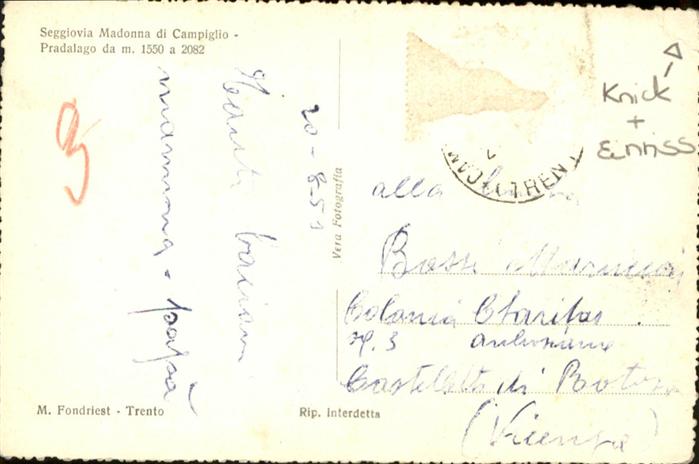 Seggiovia Madonna di Campiglio -
Pradalago da m. 1550 a 2082
20-8-53
Tanti bacioni
mamma e papà
Vera Fotografia
TRENT
Knick
+
Einriss
alla
Bossi
Colonia Charitas
N. 3
Castelletto di Rotzo
(Vicenza)
M. Fondriest - Trento
Rip. interdetta